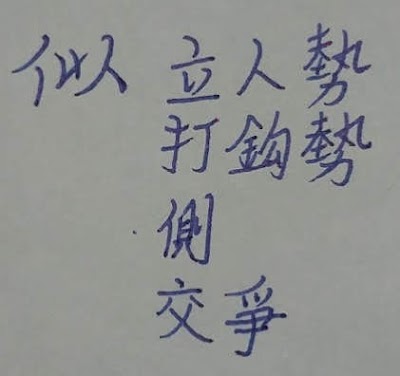 似 立人勢
打鈎勢
側
交爭